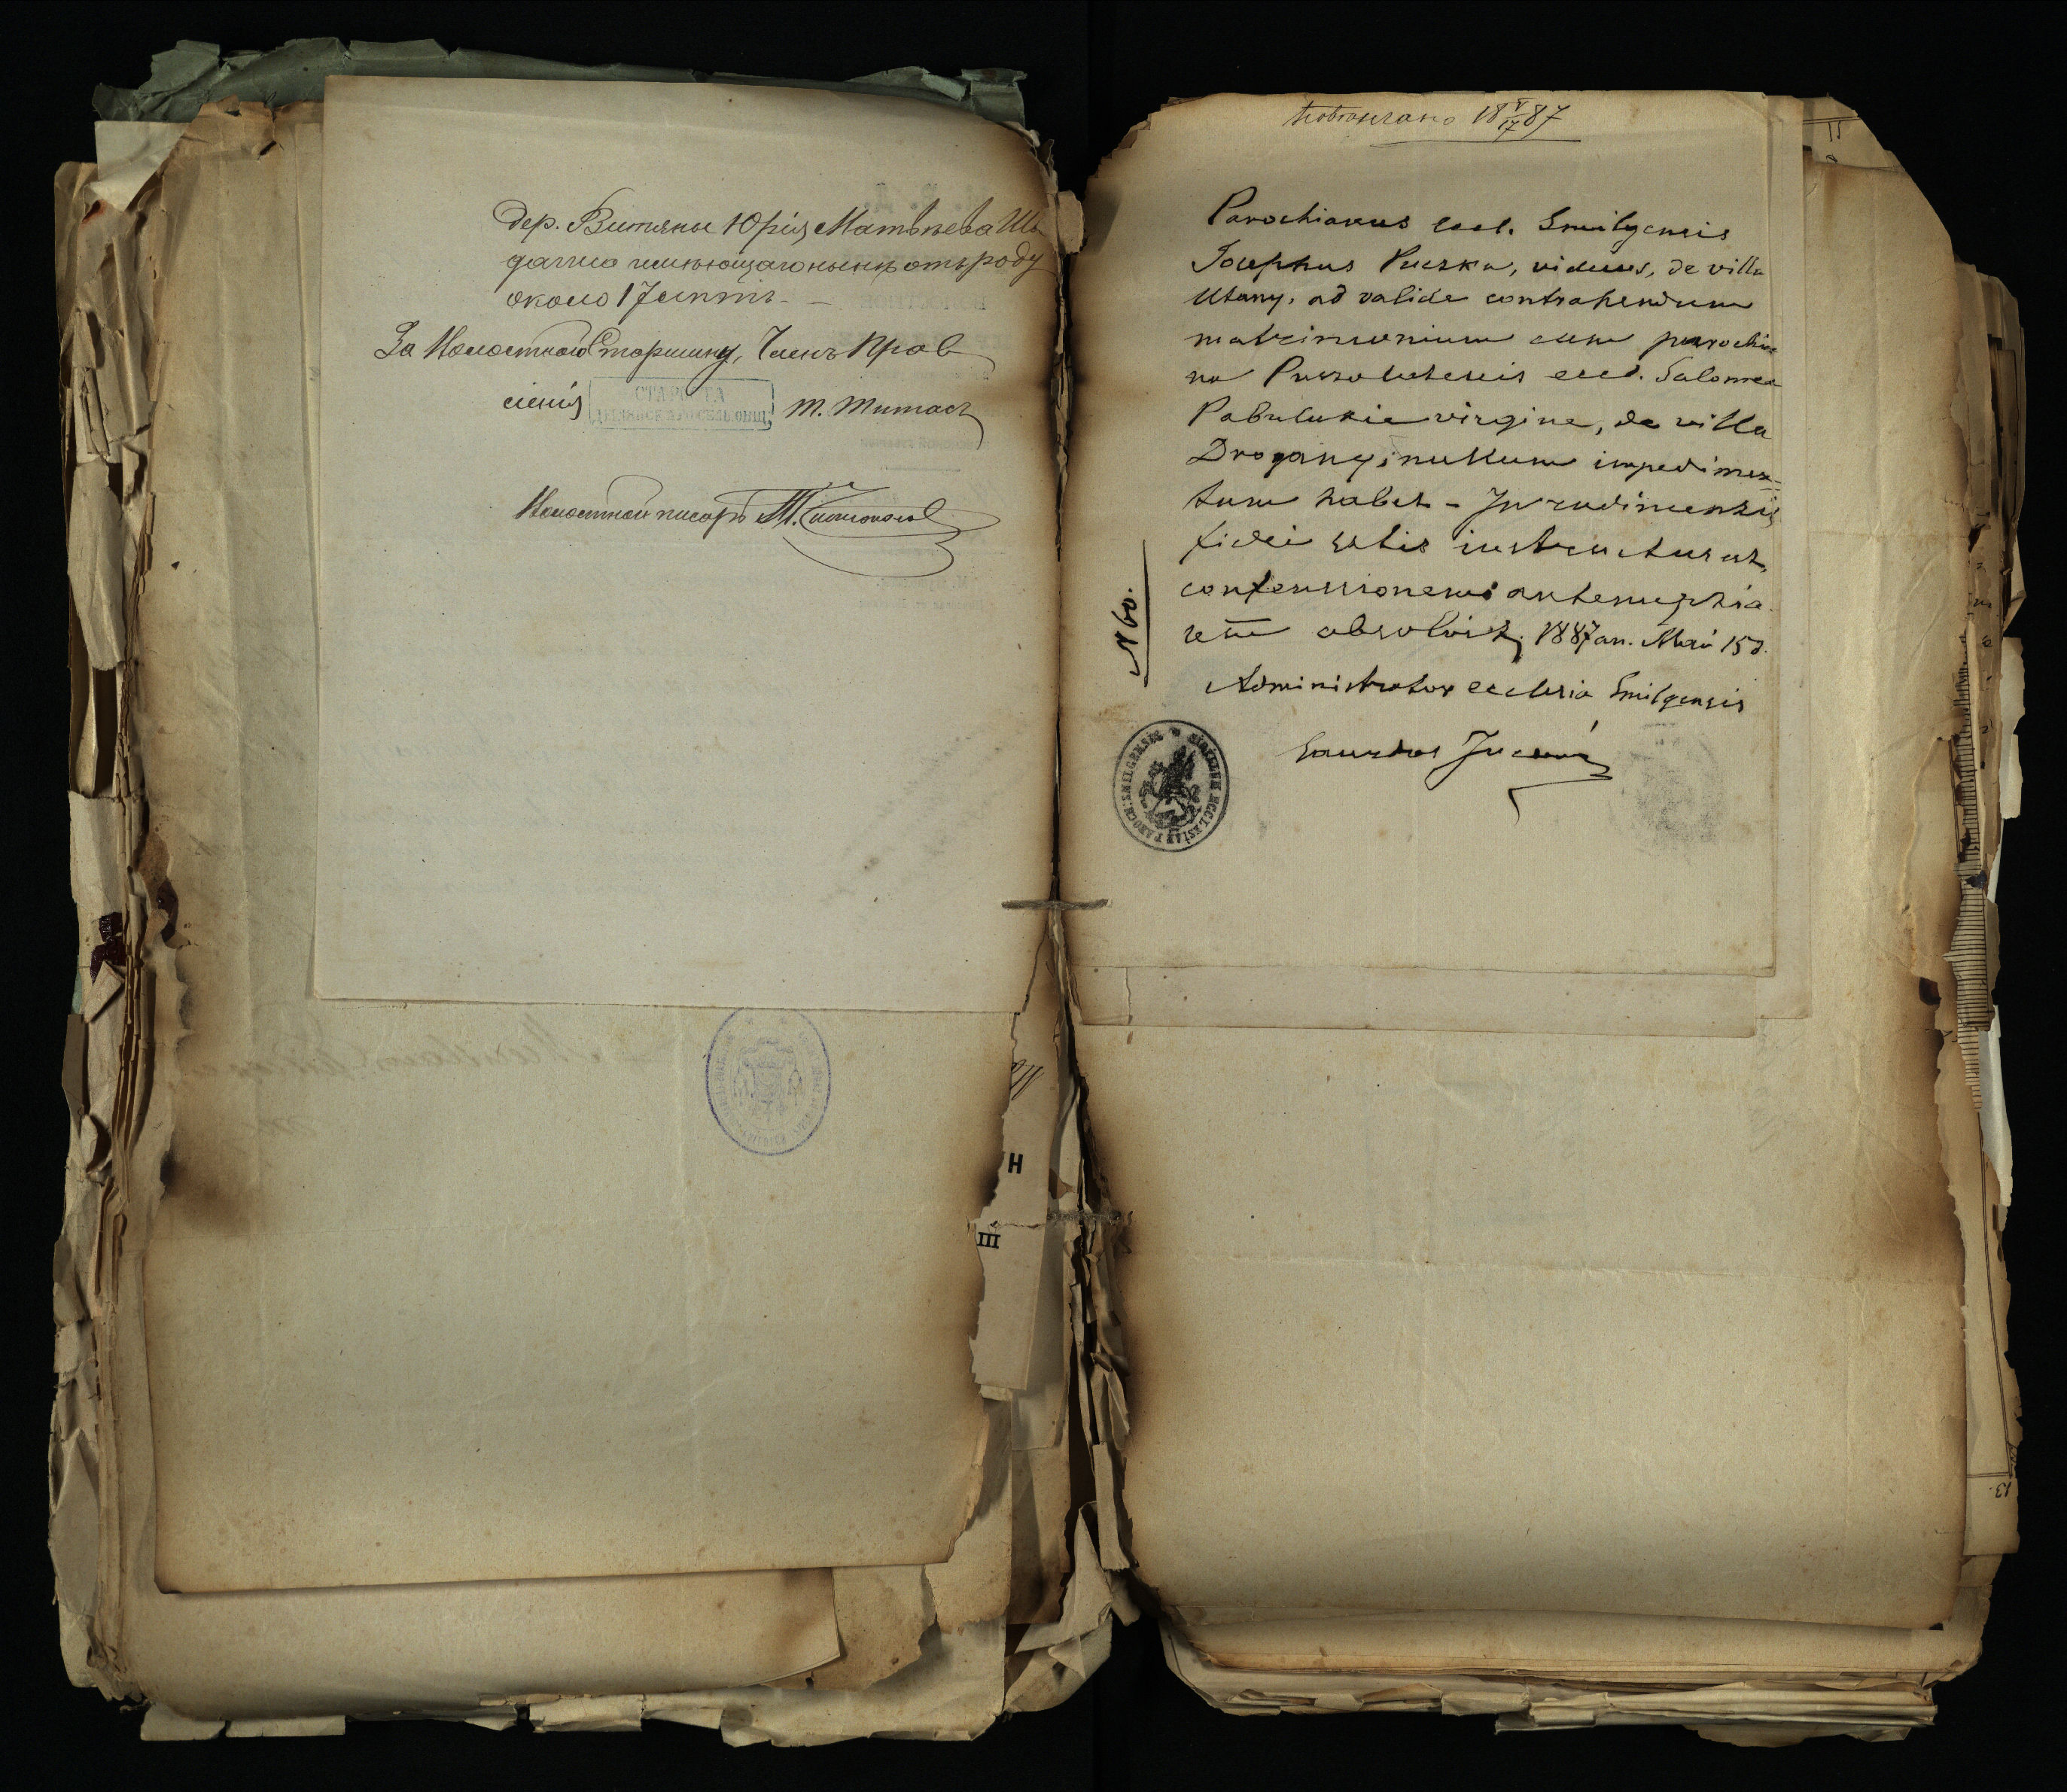 дер. Витяны Юрія Матвѣева Ши
гално имѣющаго нынѣ отъ роду
около 17 лѣтъ. —
За Волостного Старшину, Членъ Прав
ленія
СТАРОСТА
М. Титасъ
Волостной писарь
18 V/17 87
Parochianus eccl. Smilgensis
Josephus Puszka, viduus, de villa
Utany, ad valide contrahendum
matrimonium cum parochia
na Puszolatensis eccl. Salomea
virgine, de villa
Drogany, nullum impedimen=
tum habet – In rudimentis
fidei satis instructus est,
confessionem antenuptia
lem absolvit, 1887 an. Maii 15 d.
Administrator ecclesia Smilgensis
N 60.
SIGILLUM ECCLESIAE PAROCH: SMILGENSIS
Н
III
13.